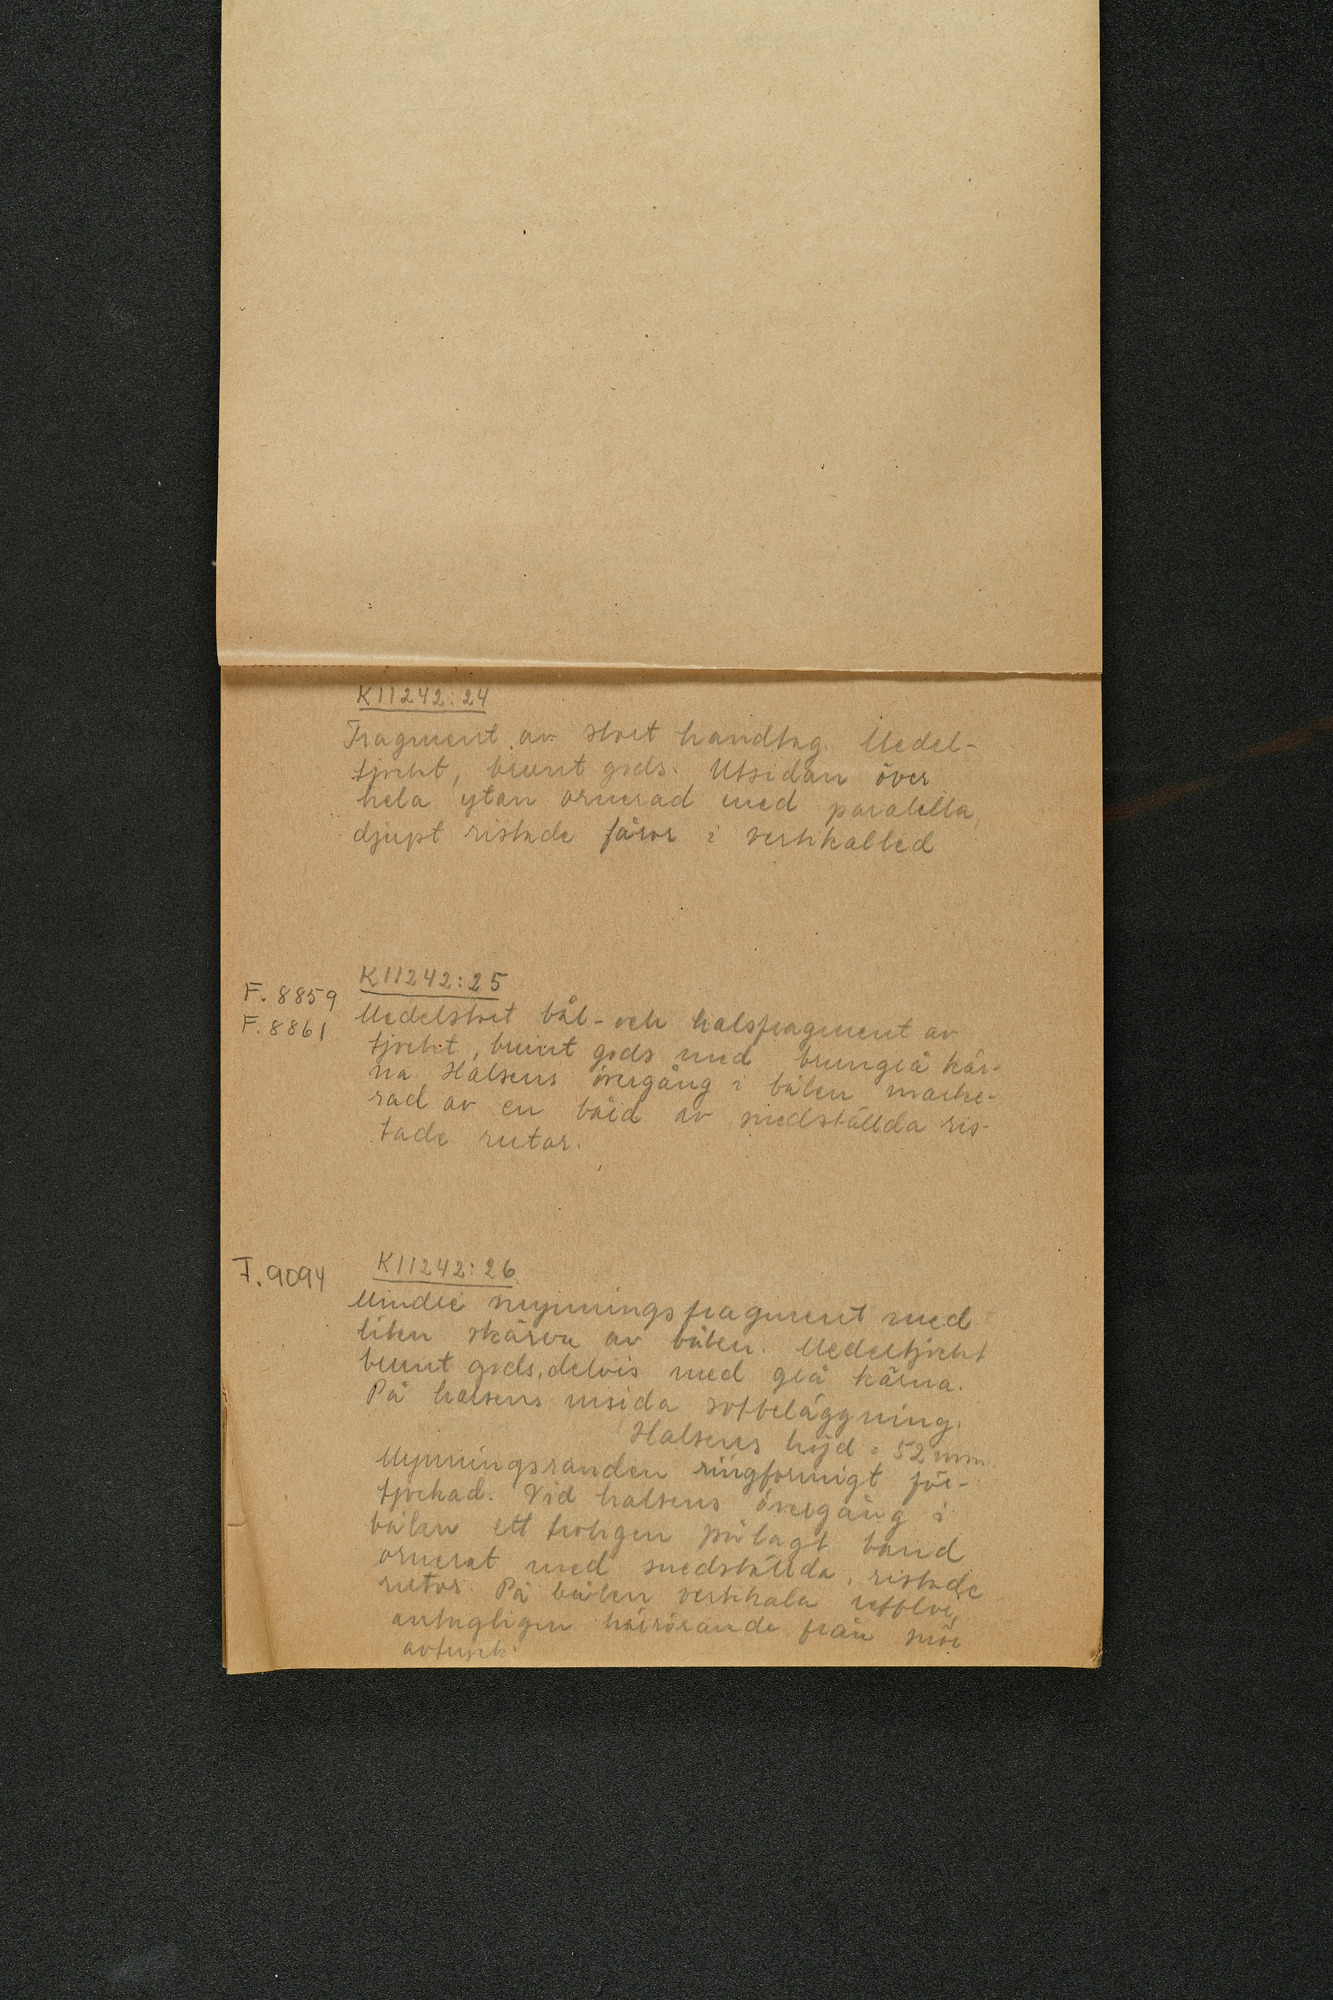 K11242:24
Fragment av stort handtag. Medel-
tjockt, brunt gods. Utsidan över
hela ytan ornerad med paralella,
djupt ristade fåror i vertikalled
K11242:25
F. 8859
F. 8861
Medelstort bål- och halsfragment av
tjockt, brunt gods med brungrå kär-
na. Halsens övergång i bålen marke-
rad av en bård av snedställda ris-
tade rutor.
F. 9094
K11242:26
Mindre mynningsfragment med
liten skärva av bålen. Medeltjockt
brunt gods, delvis med grå kärna.
På halsens insida sotbeläggning.
Halsens höjd = 52 mm.
Mynningsranden ringformigt för-
tjockad. Vid halsens övergång i
bålen ett troligen pålagt band
ornerat med snedställda, ristade
rutor. På bålen vertikala
antagligen härrörande från snör
avtryck.